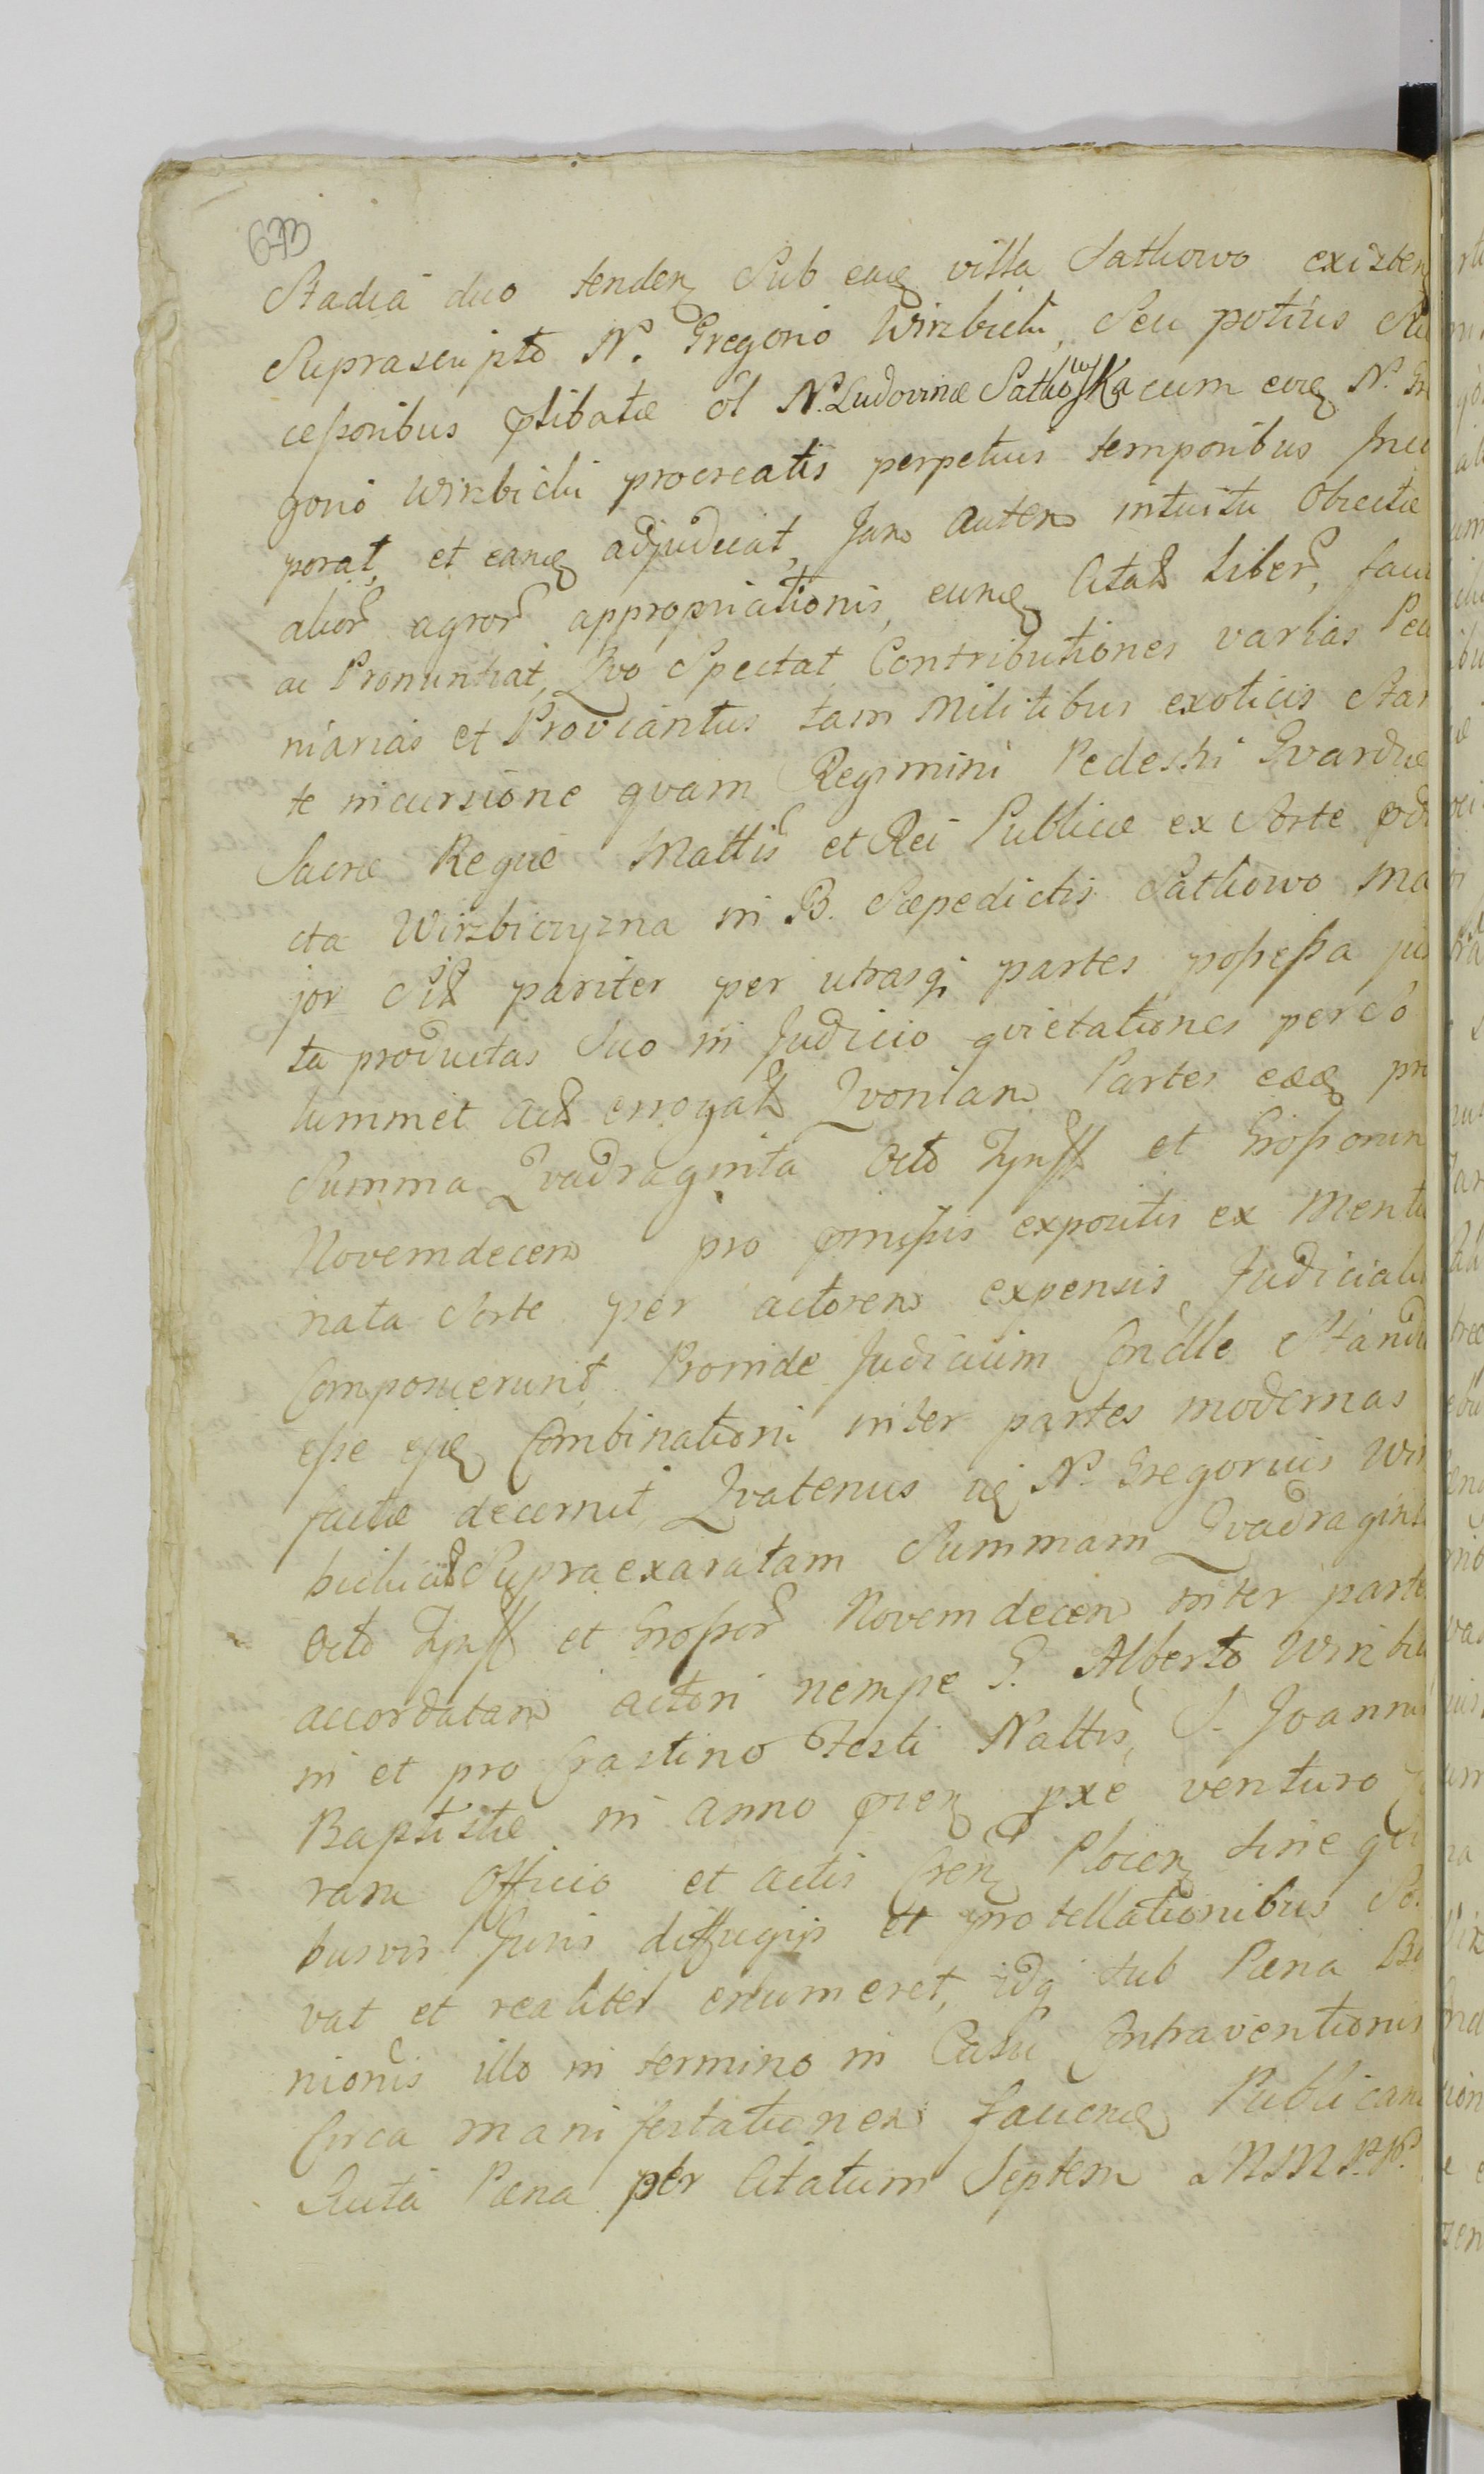 673
Stadia duo tenden Sub eaq villa Sathowo existen
Suprascripto N. Gregorio Wirzbicki, Seu potius Su
cessoribus plibatæ ol N. Ludovinæ Sathowska cum eoq N. Gre
gorio Wirzbicki procreatis perpetuis temporibus Incor
porat, et eamq adjudicat, Jam autem intuitu Obiectæ
alior agror appropriationis, eunq Citat Liber, faci
ac Pronuntiat, Qvo Spectat Contributiones varias Pecu
niarias et Proviantus tam Militibus exoticis Stan
te incursione qvam Regimini Pedestri Gvardiæ
Sacræ Regiæ Mattis et Rei Publicæ ex Sorte prædi
cta Wirzbiczyzna in B. Sæpedictis Sathowo Ma
jor Sit pariter per utrasq partes possessa jux
ta productas Suo in Judicio qvietationes per eo
tummet Act errogat Qvoniam Partes eæq pro
Summa Qvadraginta Octo Tynff et Grossorum
Novemdecem pro præmissis expositis ex Menti
nata Sorte per actorem expensis Judiciali
Composuerunt Proinde Judicium Condle Standu
esse ejq Combinationi inter partes modernas
factæ decernit, Qvatenus iq N. Gregorius Wirz
bicki Supraexaratam Summam Qvadraginta
Octo Tynff et Grossor Novemdecem inter partes
accordatam actori nempe G. Alberto Wirzbic
in et pro Crastino Festi Nattis, S. Joannis
Baptistæ in anno præn pxe venturo
ram Officio et actis Cren Plocen sine qui
busvis Juris diffugijs et protellationibus Sol
vat et realiter enumeret, idq sub Pæna Ban
nionis illo in termino in Casu Contraventionis
Circa manifestationem facienq Publicanq
Luita Pæna per Citatum Septem MMPP